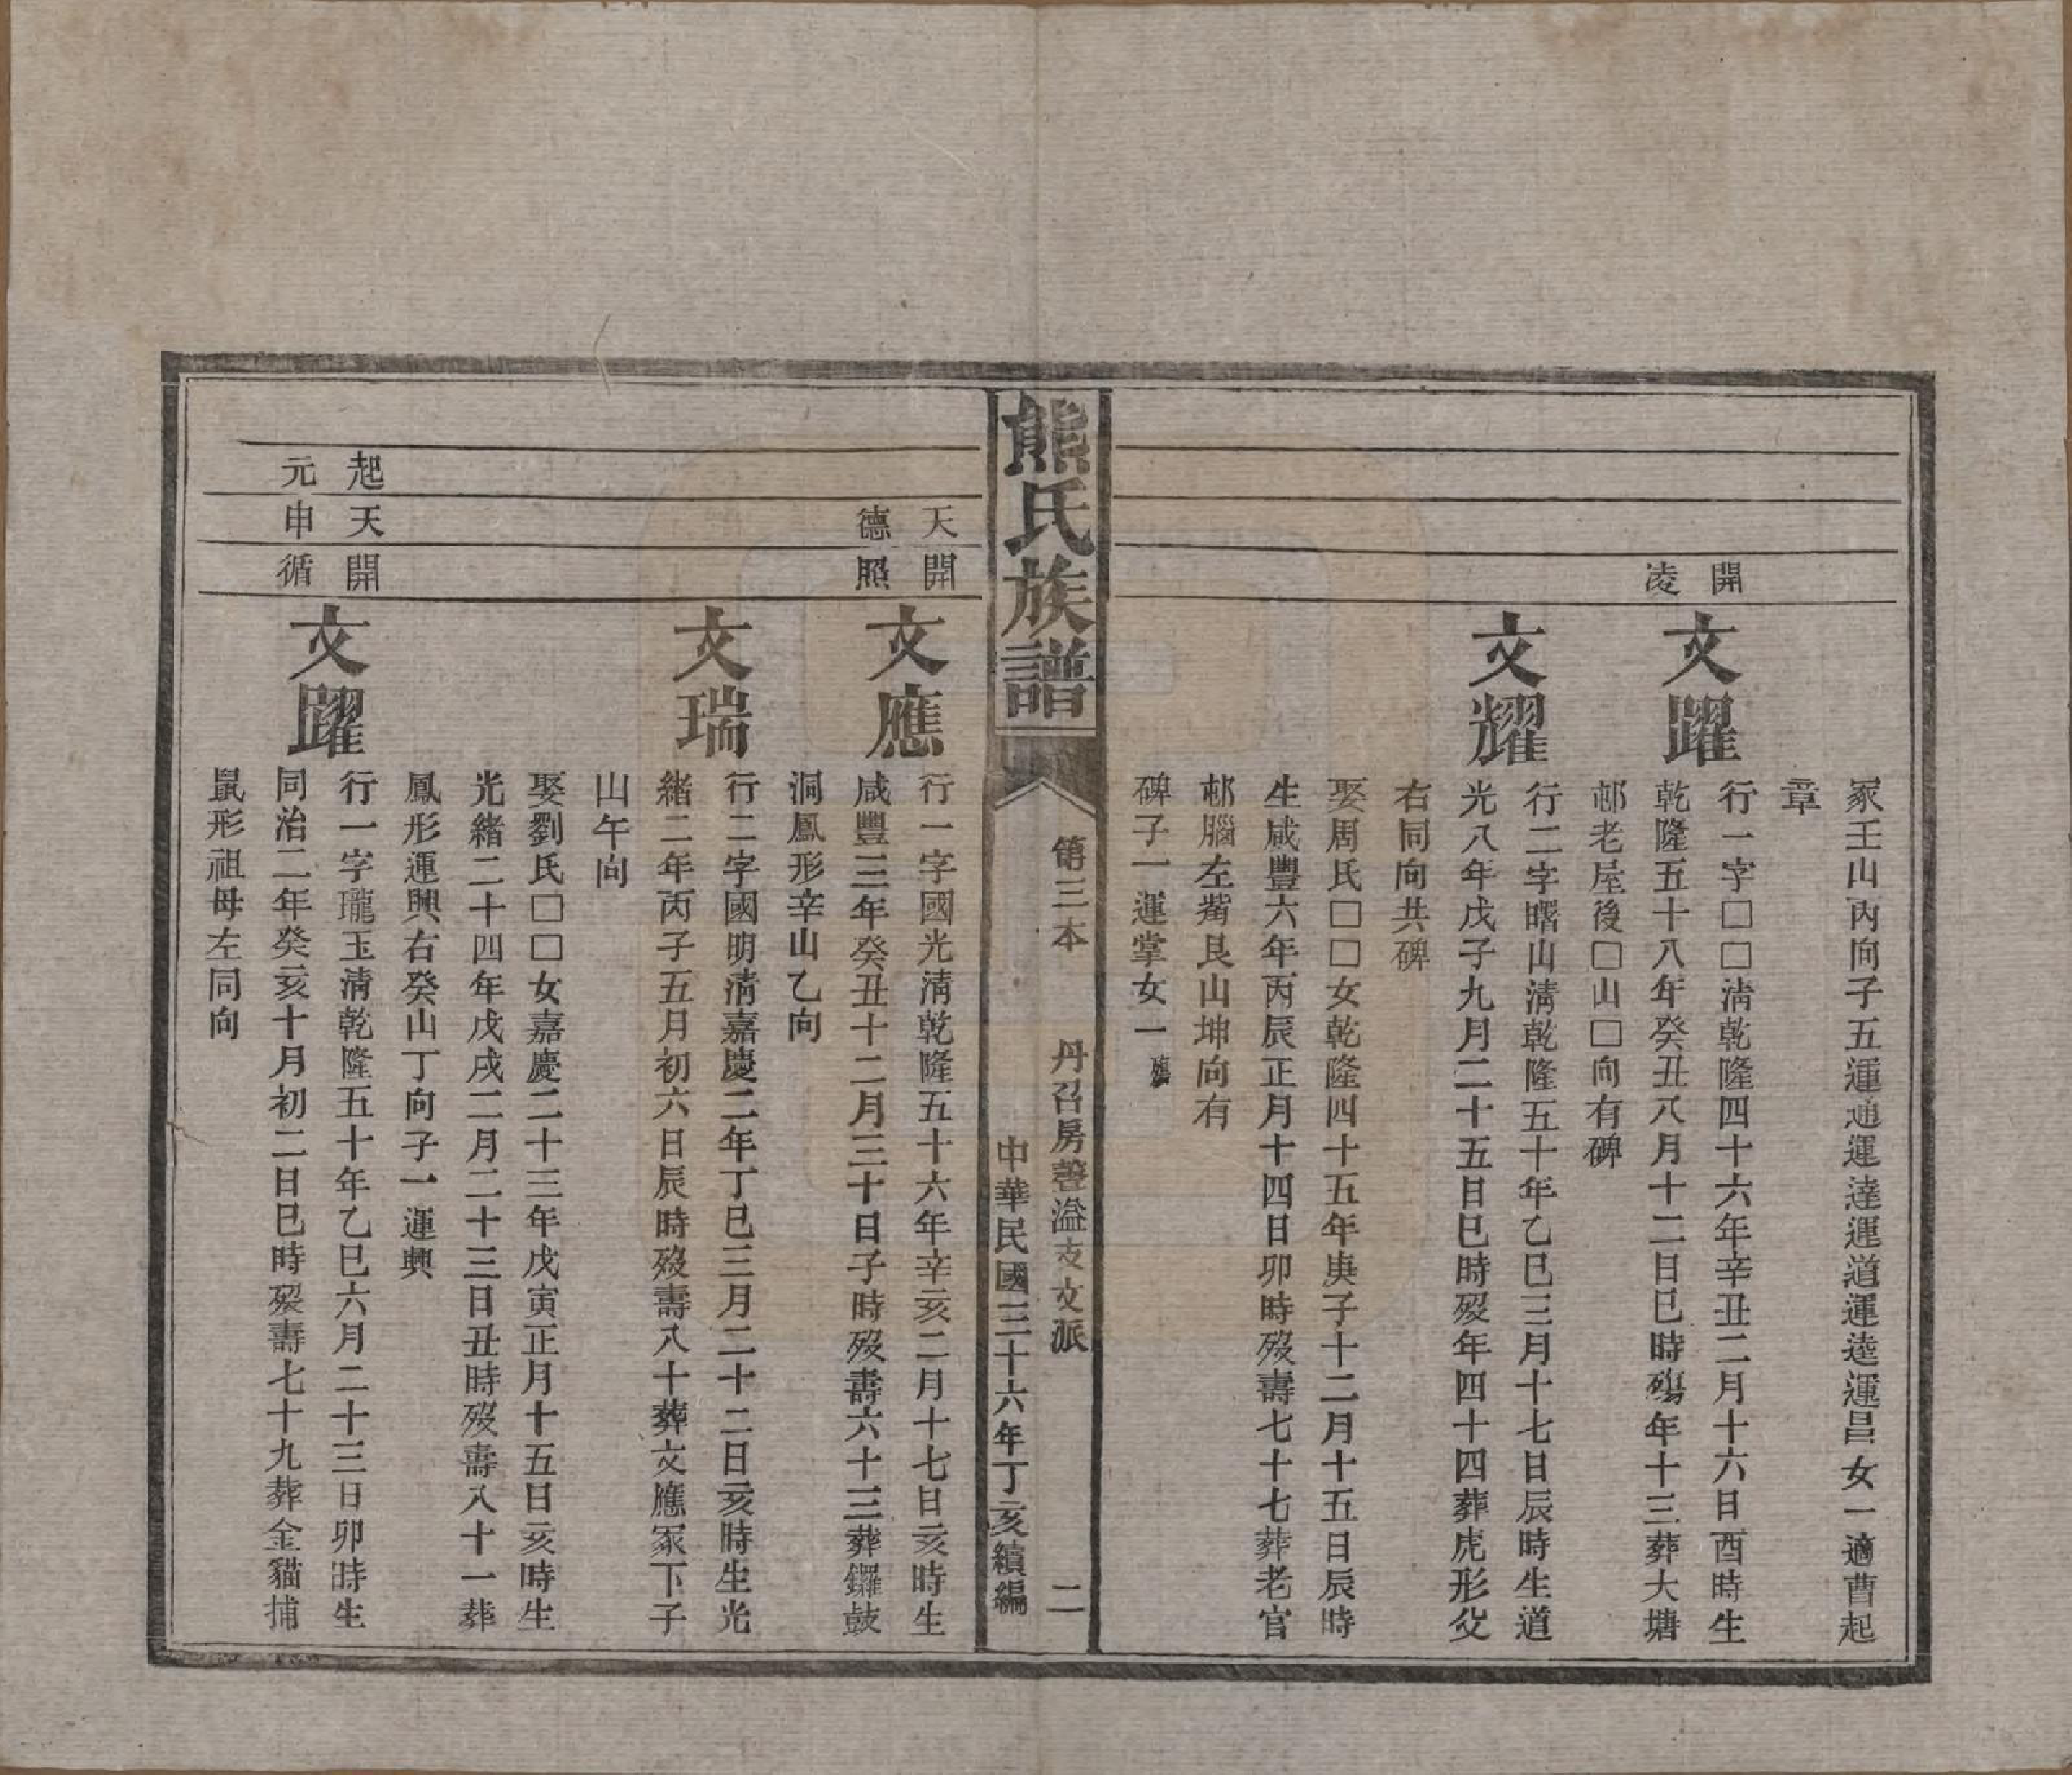 冢壬山丙向子五運通運達運道運逵運昌女一適曹起
章
開
凌
文躍
行一字□□淸乾隆四十六年辛丑二月十六日酉時生
乾隆五十八年癸丑八月十二日巳時殤年十三葬大塘
邨老屋後□山□向有碑
文耀
行二字曙山淸乾隆五十年乙巳三月十七日辰時生道
光八年戊子九月二十五日巳時歿年四十四葬虎形父
右同向共碑
娶周氏□□女乾隆四十五年庚子十二月十五日辰時
生咸豐六年丙辰正月十四日卯時歿壽七十七葬老官
邨腦左嘴艮山坤向有
碑子一運掌女一殤
熊氏族譜
第三本
丹召房馨溢支文派
二
中華民國三十六年丁亥續編
天開
德照
文應
行一字國光淸乾隆五十六年辛亥二月十七日亥時生
咸豐三年癸丑十二月三十日子時歿壽六十三葬鑼鼓
洞鳳形辛山乙向
文瑞
行二字國明淸嘉慶二年丁巳三月二十二日亥時生光
緒二年丙子五月初六日辰時歿壽八十葬文應冢下子
山午向
娶劉氏□□女嘉慶二十三年戊寅正月十五日亥時生
光緒二十四年戊戌二月二十三日丑時歿壽八十一葬
鳳形運興右癸山丁向子一運興
起天開
元申循
文躍
行一字瓏玉淸乾隆五十年乙巳六月二十三日卯時生
同治二年癸亥十月初二日巳時歿壽七十九葬金貓捕
鼠形祖母左同向